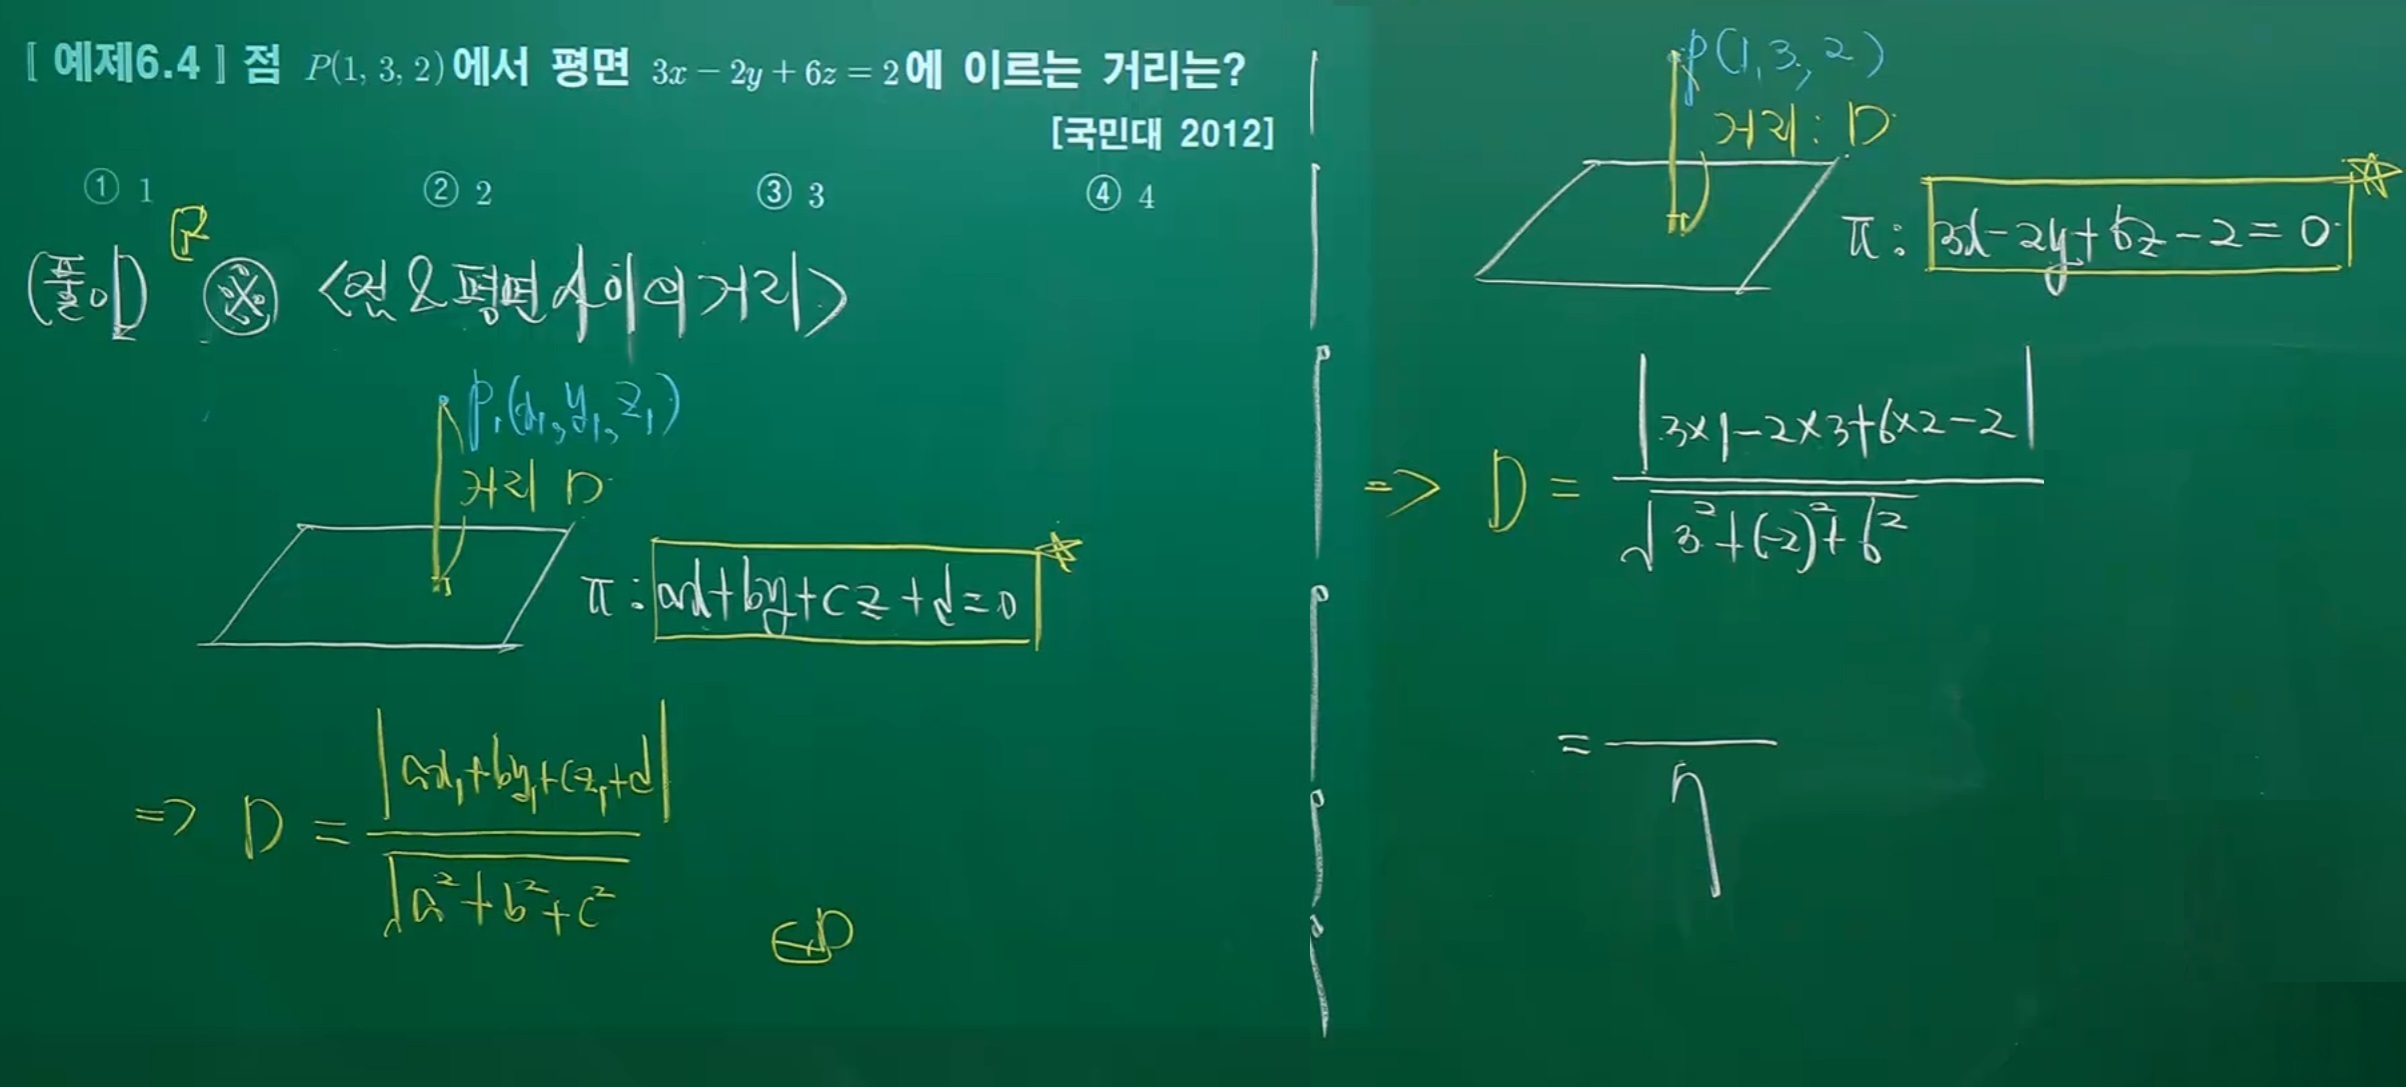 [ 예제6.4 ] 점 P(1, 3, 2)에서 평면 3x − 2y + 6z = 2에 이르는 거리는?
[국민대 2012]
① 1 ② 2 ③ 3 ④ 4
(풀이) ※ <점 & 평면 사이의 거리>
P₁(x₁, y₁, z₁)
거리 D
π : ax+by+cz+d=0
=> D = |ax₁+by₁+cz₁+d| / √a²+b²+c²
P(1, 3, 2)
거리 : D
π : 3x-2y+6z-2=0
=> D = |3×1-2×3+6×2-2| / √3²+(-2)²+6²
= / 7